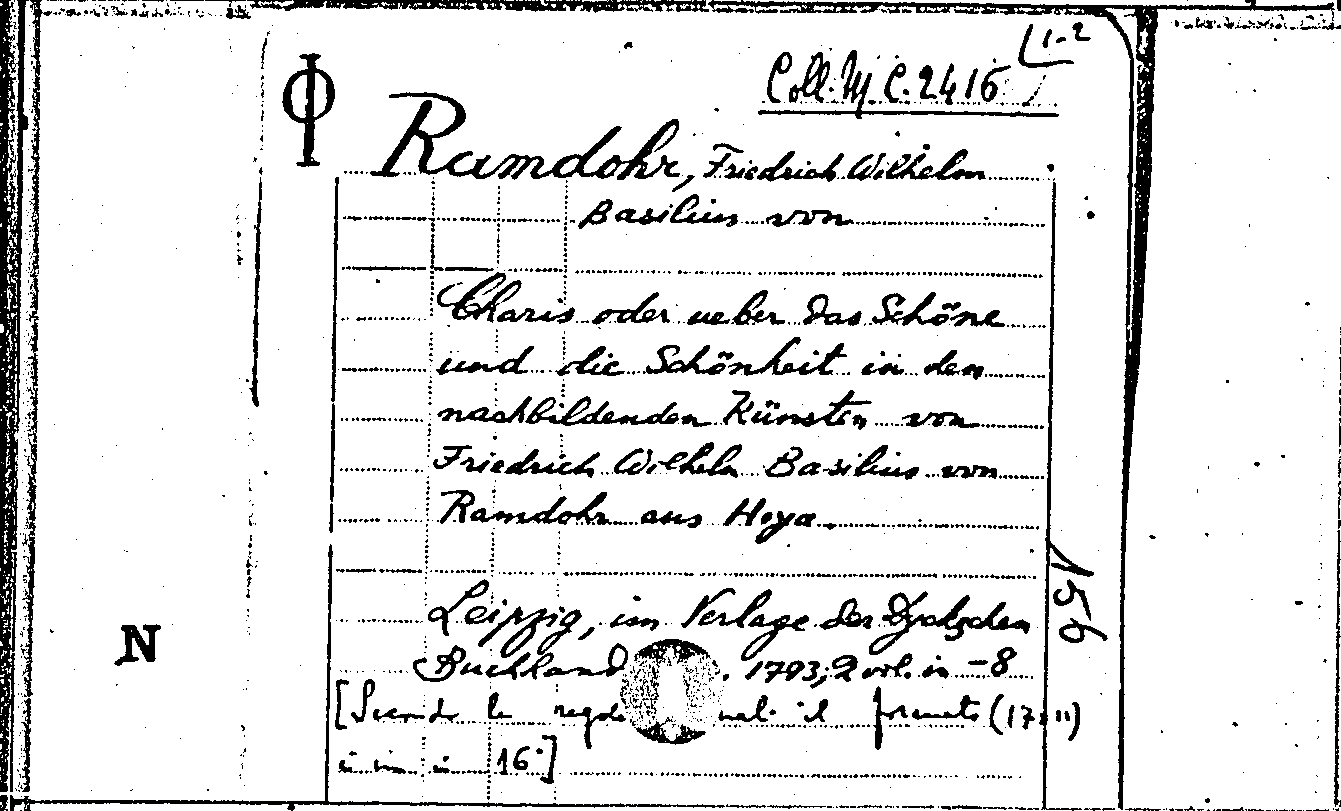 1-2
Φ
Coll. M. C. 2416
Ramdohr, Friedrich Wilhelm
Basilius von
Charis oder ueber das Schöne
und die Schönheit in den
nachbildenden Künsten von
Friedrich Wilhelm Basilius von
Ramdohr aus Hoya.
156
Leipzig, im Verlage der Dyckschen
N
Buchhand . 1793; 2 vol. in -8
[Secondo le rego nal. il formato (17 11)
in 16°]